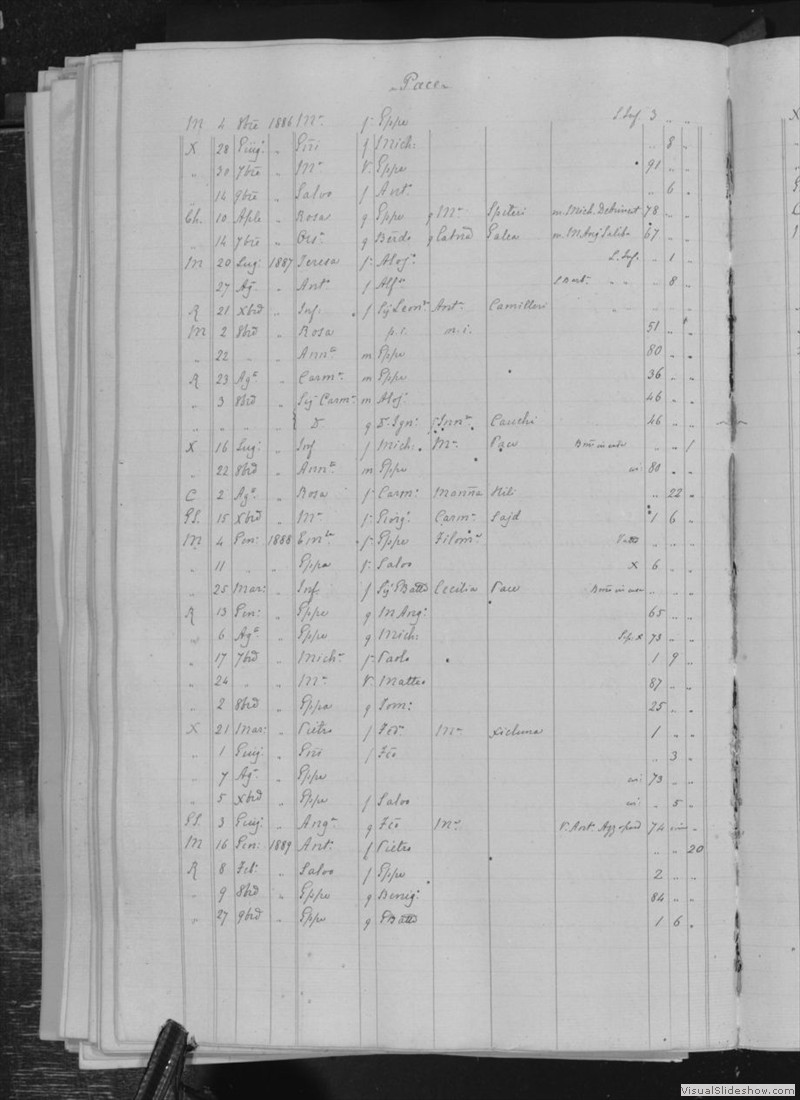 Pace
M 4 8bre 1886 Mª f Gppe S. Inf. 3 „ „
X 28 Giug: „ f Mich: „ 8 „
„ 30 7bre „ Mª V. Gppe 91 „ „
„ 14 9bre „ Salvo f Ant: „ 6 „
Ch. 10 Aple „ Rosa g Gppe g Mª Spiteri m. Mich. Debrincat 78 „ „
„ 14 7bre „ Orsª g Berdo g Catnª Galea m. M Ang Saliba 67 „ „
M 20 Lug: 1887 Teresa f Aloj: S. Inf. „ 1 „
27 Agº „ Antª f Alfº „ „ 8 „
R 21 Xbre „ Inf. f Sig Leonº Antª Camilleri
M 2 8bre „ Rosa p.i. m.i. 51 „ „
„ 22 „ „ Annª m Gppe 80 „ „
R 23 Agº „ Carmª m Gppe 36 „ „
„ 3 8bre „ Sig Carmª m Aloj: 46 „ „
„ „ „ „ D g D. Ign: f Innª Cauchi 46 „ „
X 16 Lug: „ Inf f Mich: Mª Pace „ „ 1
„ 22 8bre „ Annª m Gppe 80 „ „
C 2 Agº „ Rosa f Carm: Marnna „ 22 „
GS. 15 Xbre „ Mª f Giorg: Carmª Sajd 1 6 „
M 4 Gen: 1888 Emla f Gppe Filomª „ „ „
„ 11 „ „ Gppa V. Salvo X 6 „ „
„ 25 Mar: „ Inf f Sig GBatta Cecilia Pace
R 13 Gen: „ Gppe g M Ang: 65 „ „
„ 6 Agº „ Gppe g Mich: 73 „ „
„ 17 7bre „ Michª f Paolo 1 9 „
„ 24 „ „ Mª V. Matteo 87 „ „
„ 2 8bre „ Gppa g Tom: 25 „ „
X 21 Mar: „ Pietro f Fcº Mª Xicluna 1 „ „
„ 1 Giug: „ f Fcº „ 3 „
„ 7 Agº „ Gppe 73 „ „
„ 5 Xbre „ Gppe f Salvo „ 5 „
GS. 3 Giug: „ Angª g Fcº Mª V. Ant. Azzopard 74 „
M 16 Gen: 1889 Ant: f Pietro „ „ 20
R 8 Feb: „ Salvo f Gppe 2 „ „
„ 9 8bre „ Gppe g Benig: 84 „ „
„ 27 9bre „ Gppe g GBatta 1 6 „
VisualSlideshow.com